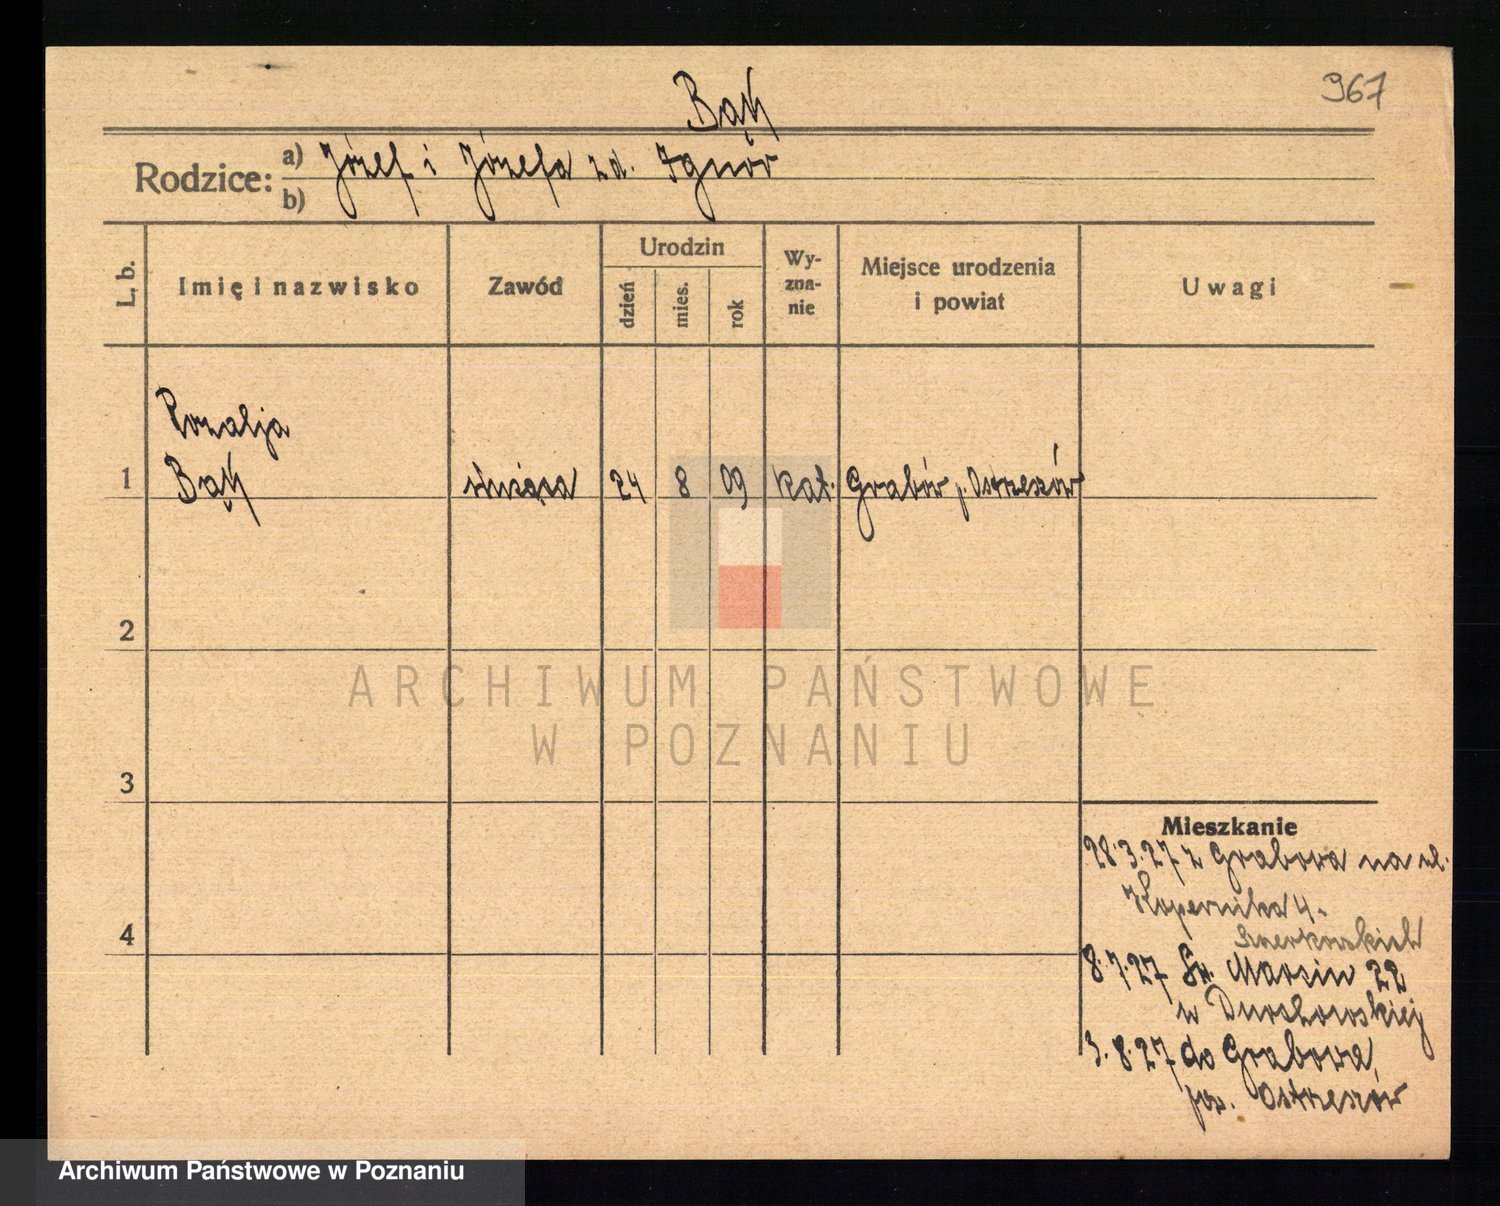 967
Bąk
Rodzice: a) Józef i Józefa z d. Ignor
b)
L. b. Imię i nazwisko Zawód Urodzin dzień mies. rok Wy-zna-nie Miejsce urodzenia i powiat Uwagi
Rozalja
1 Bąk służąca 24 8 09 kat. Grabów p. Ostrzeszów
2
ARCHIWUM PAŃSTWOWE
W POZNANIU
3
Mieszkanie
28.3.27 z Grabowa na ul.
Kopernika 4
4
8.7.27 Św. Marcin 22
u
3.8.27 do Grabowa,
pow. Ostrzeszów
Archiwum Państwowe w Poznaniu